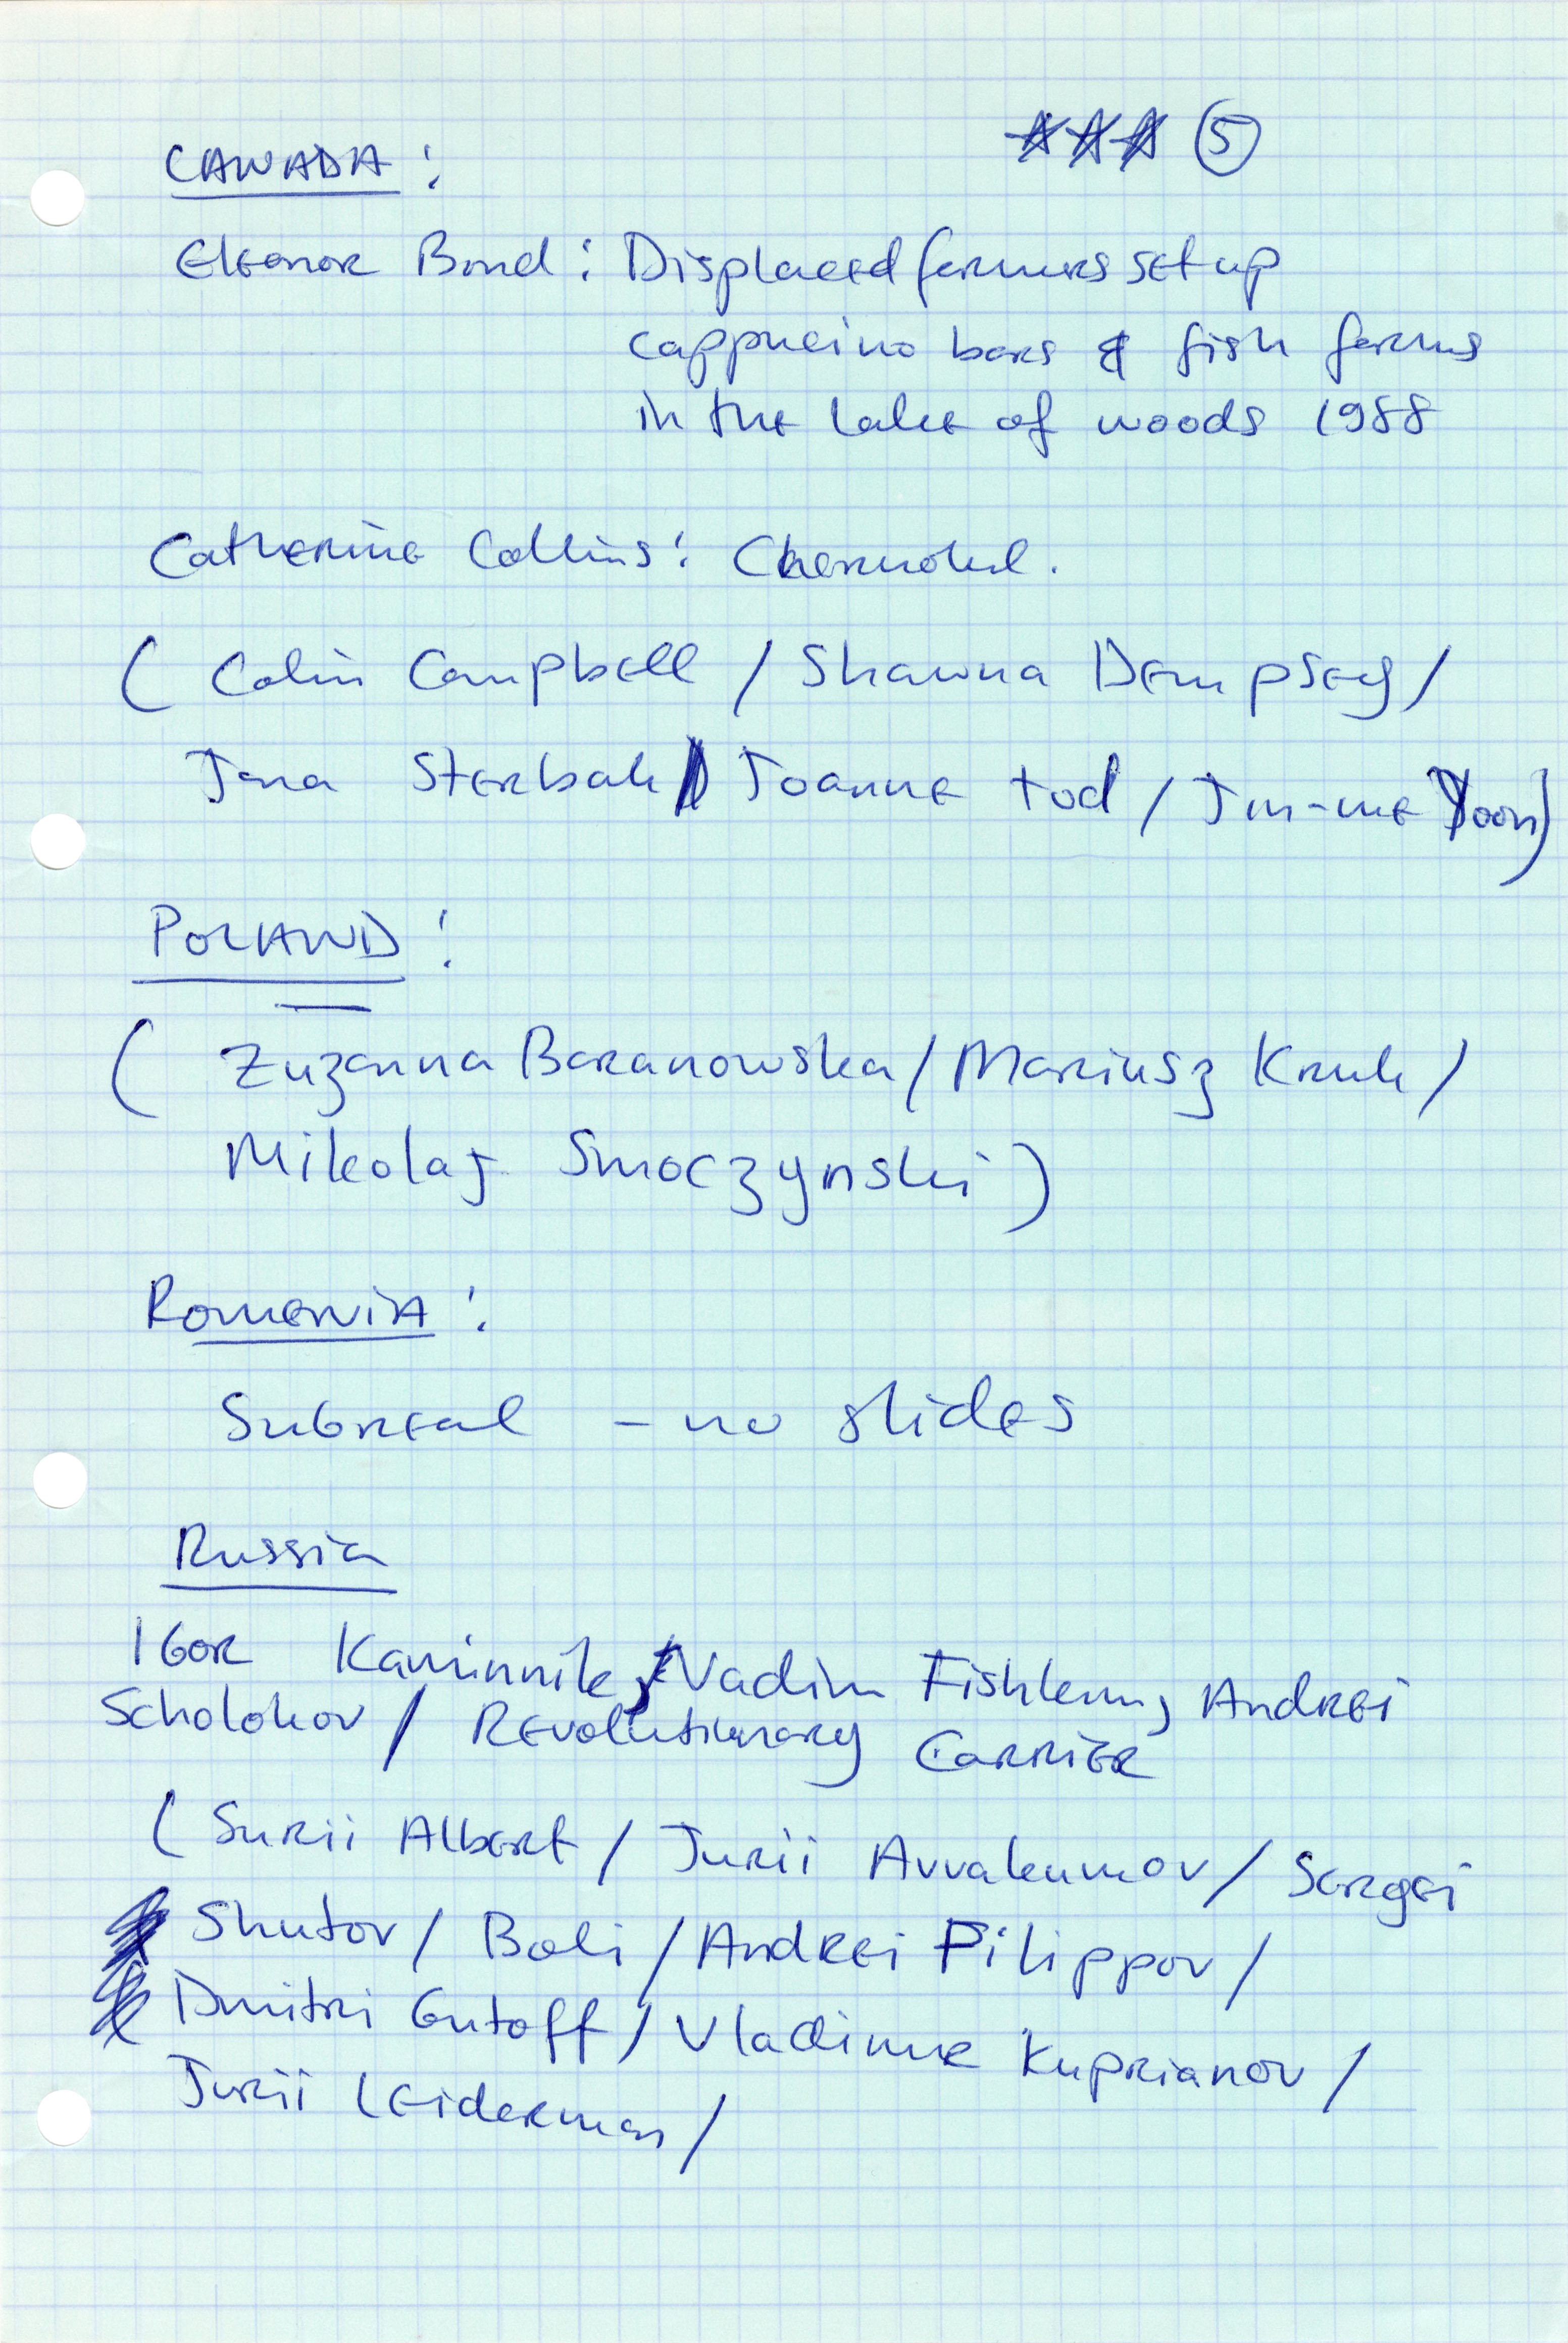 ⑤
CANADA:
Eleonor Bond: Displaced farmers set up
cappucino bars & fish farms
in the lake of woods 1988
Catherine Collins: Chernobil.
( Colin Campbell / Shawna Dempsey /
Jana Sterbak / Joanne Tod / Jin-me Yoon)
POLAND:
( Zuzanna Baranowska / Mariusz Kruk /
Mikolaj Smoczynski )
Romania:
Subreal - no slides
Russia
Igor Kaminnik, Vadim Fishkern, Andrei
Scholokov / Revolutionary Carrier
( Surii Albert / Jurii Avvakumov / Sergei
Shutov / Boli / Andrei Filippov /
Dmitri Gutoff / Vladimir Kuprianov /
Jurii Leiderman /